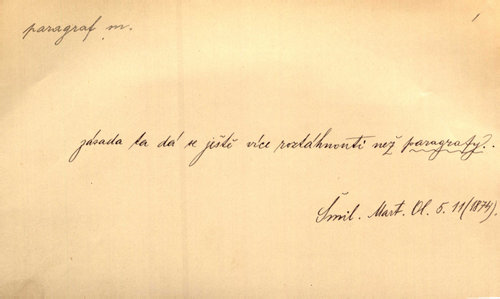 paragraf m.
1
zásada ta dá se ještě více roztáhnouti než paragrafy?..
Šmil. Mart. Ol. 5. 11 (1874).